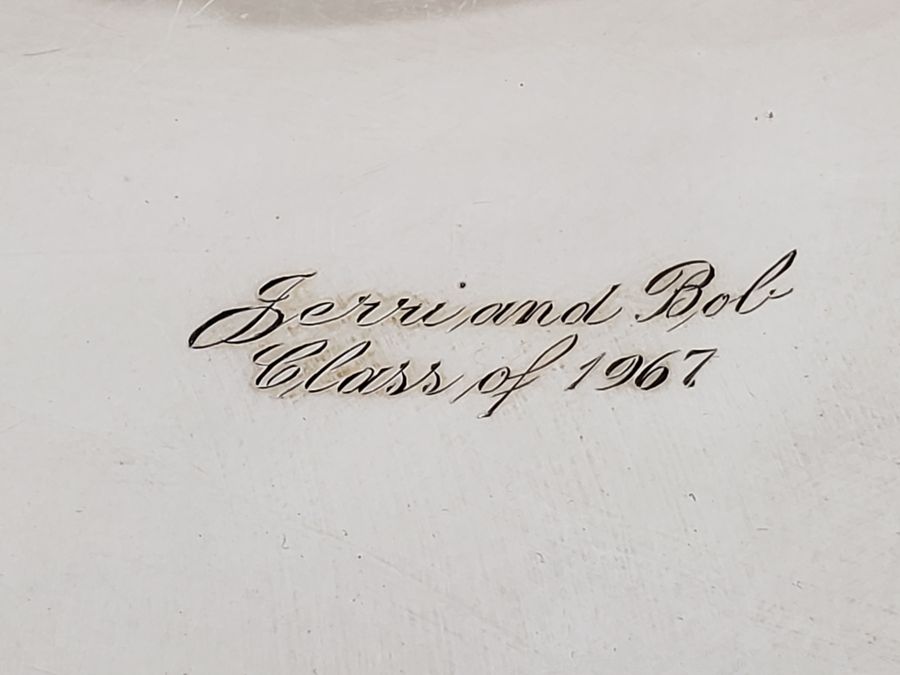 Jerri and Bob
Class of 1967